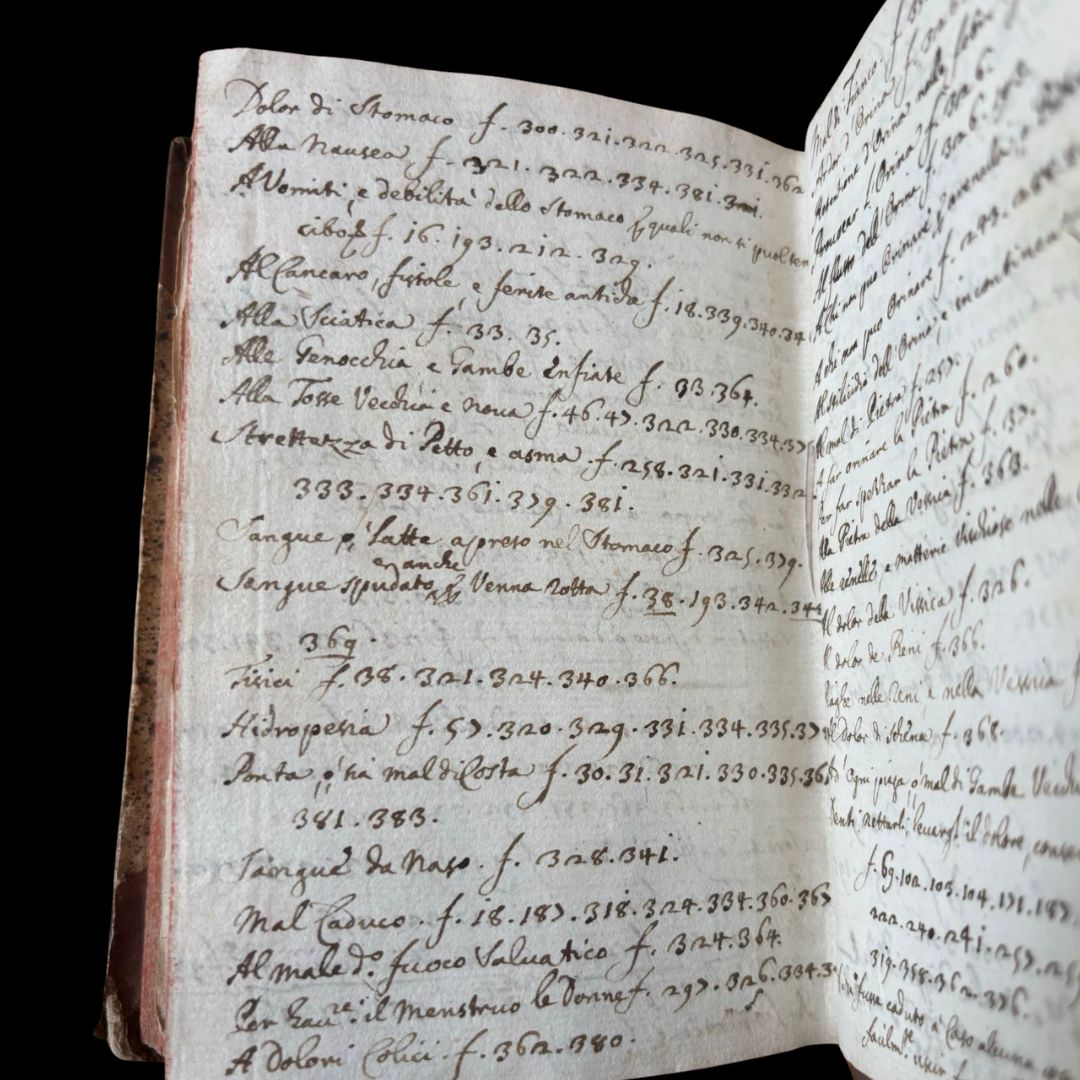 Dolor di Stomaco f. 300. 321. 322. 325. 331. 362
Alla Nausea f. 321. 322. 334. 381.
A Vomiti, e debilità dello Stomaco quali non si puol ten
cibo f. 16. 193. 212. 329.
Al Cancaro, fistole, e ferite antiche f. 18. 339. 340. 34
Alla Sciatica f. 33. 35.
Alle Genocchia e Gambe Enfiate f. 33. 364.
Alla Tosse Vecchia e nova f. 46. 47. 322. 330. 334. 375
Strettezza di Petto, e asma f. 258. 321. 331. 332
333. 334. 361. 379. 381.
Sangue, ò Latte apreso nel Stomaco f. 325. 379.
e anche
Sangue spudato Venna rotta f. 38. 193. 342. 344
369.
Tisici f. 38. 321. 324. 340. 366.
Hidropesia f. 57. 320. 329. 331. 334. 335. 37
Ponta, ò sia mal di Costa f. 30. 31. 321. 330. 335. 36
381. 383.
Sangue da Naso. f. 328. 341.
Mal Caduco. f. 18. 187. 318. 324. 334. 360. 367
Al male d.º fuoco Salvatico f. 324. 364.
Per il Menstruo le Donne f. 297. 326. 334. 3
A Dolori Colici. f. 362. 380.
Mal di Fianco. f.
Ardor d'Orina f.
Retentione d'Orina nelle febri
Provocar l'Orina f. 326.
Al flusso dell'Orina f. 326.
A Chi non puo Orinare
A chi non puo Orinare f.
Al stilicidio dell'Orina, e incontinen
Al mal di Pietra f. 257.
A far orinare la Pietra f. 260.
Per far spezzar la Pietra f. 37.
Alla Pietra della Vessica f. 363.
e matterie Vischiose nelle
Al dolor della Vissica f. 326.
Al dolor de Reni f. 366.
Piaghe nelle reni e nella Vessica f
Al dolor di schena f. 368.
Ad Ogni piaga, ò mal di Gamba Vecchi
Denti nettarli, levargl' il dolore, conser
f. 69. 102. 103. 104. 171. 187.
222. 240. 241. 257. 25
319. 358. 362. 376.
fusse caduto à Caso alcuna cosa
facilm.te usir f.